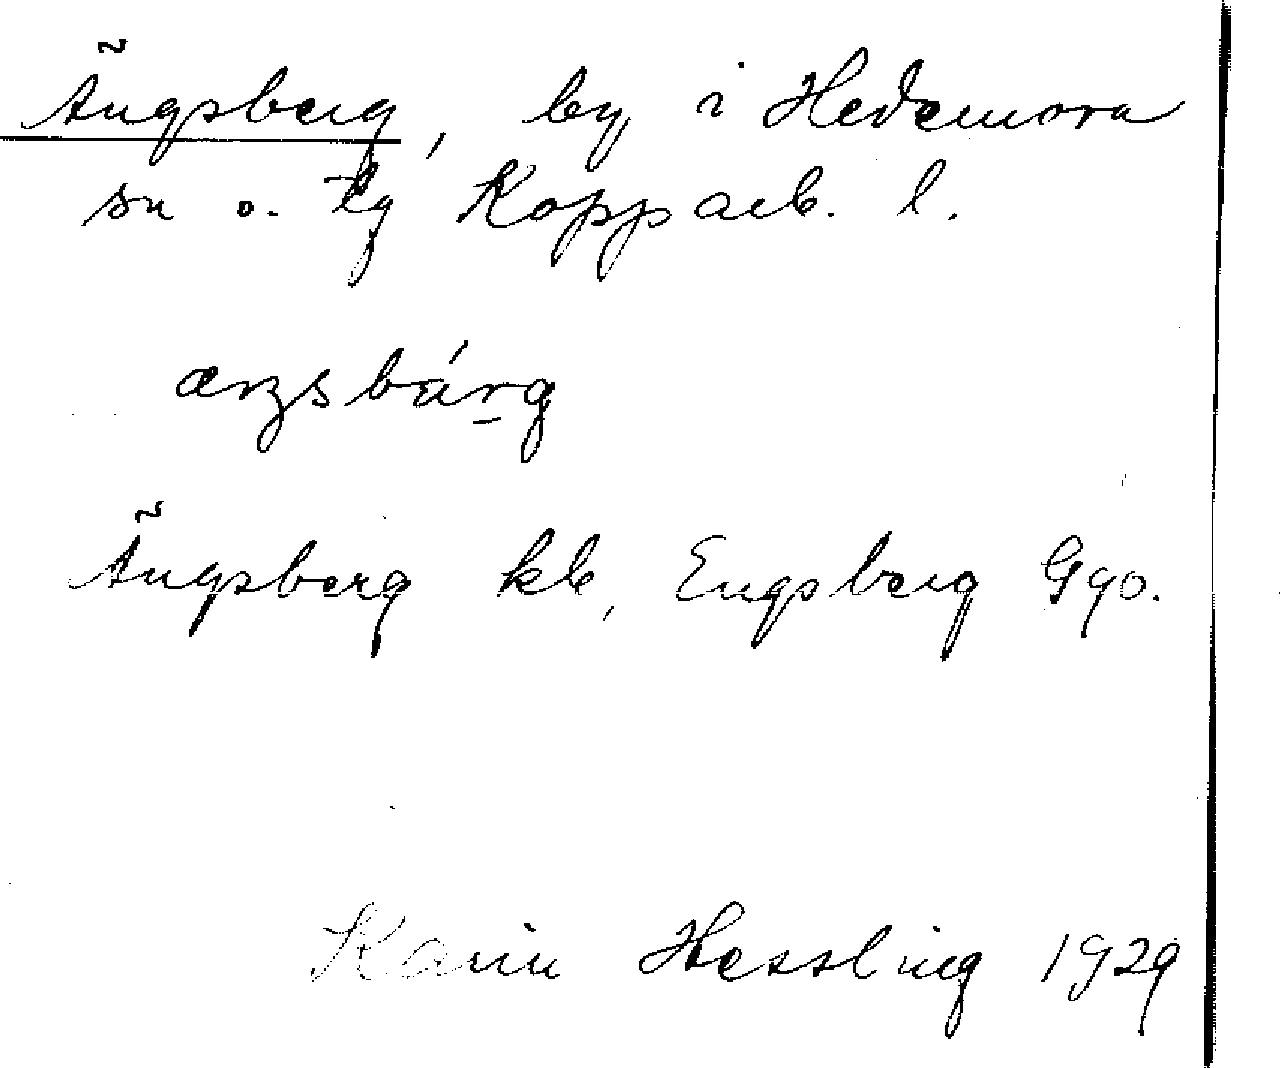 Ängsberg, by i Hedemora
sn o. tg Kopparb. l.
æŋsbárg
Ängsberg kb, Engsberg Ggo.
Karin Hessling 1929